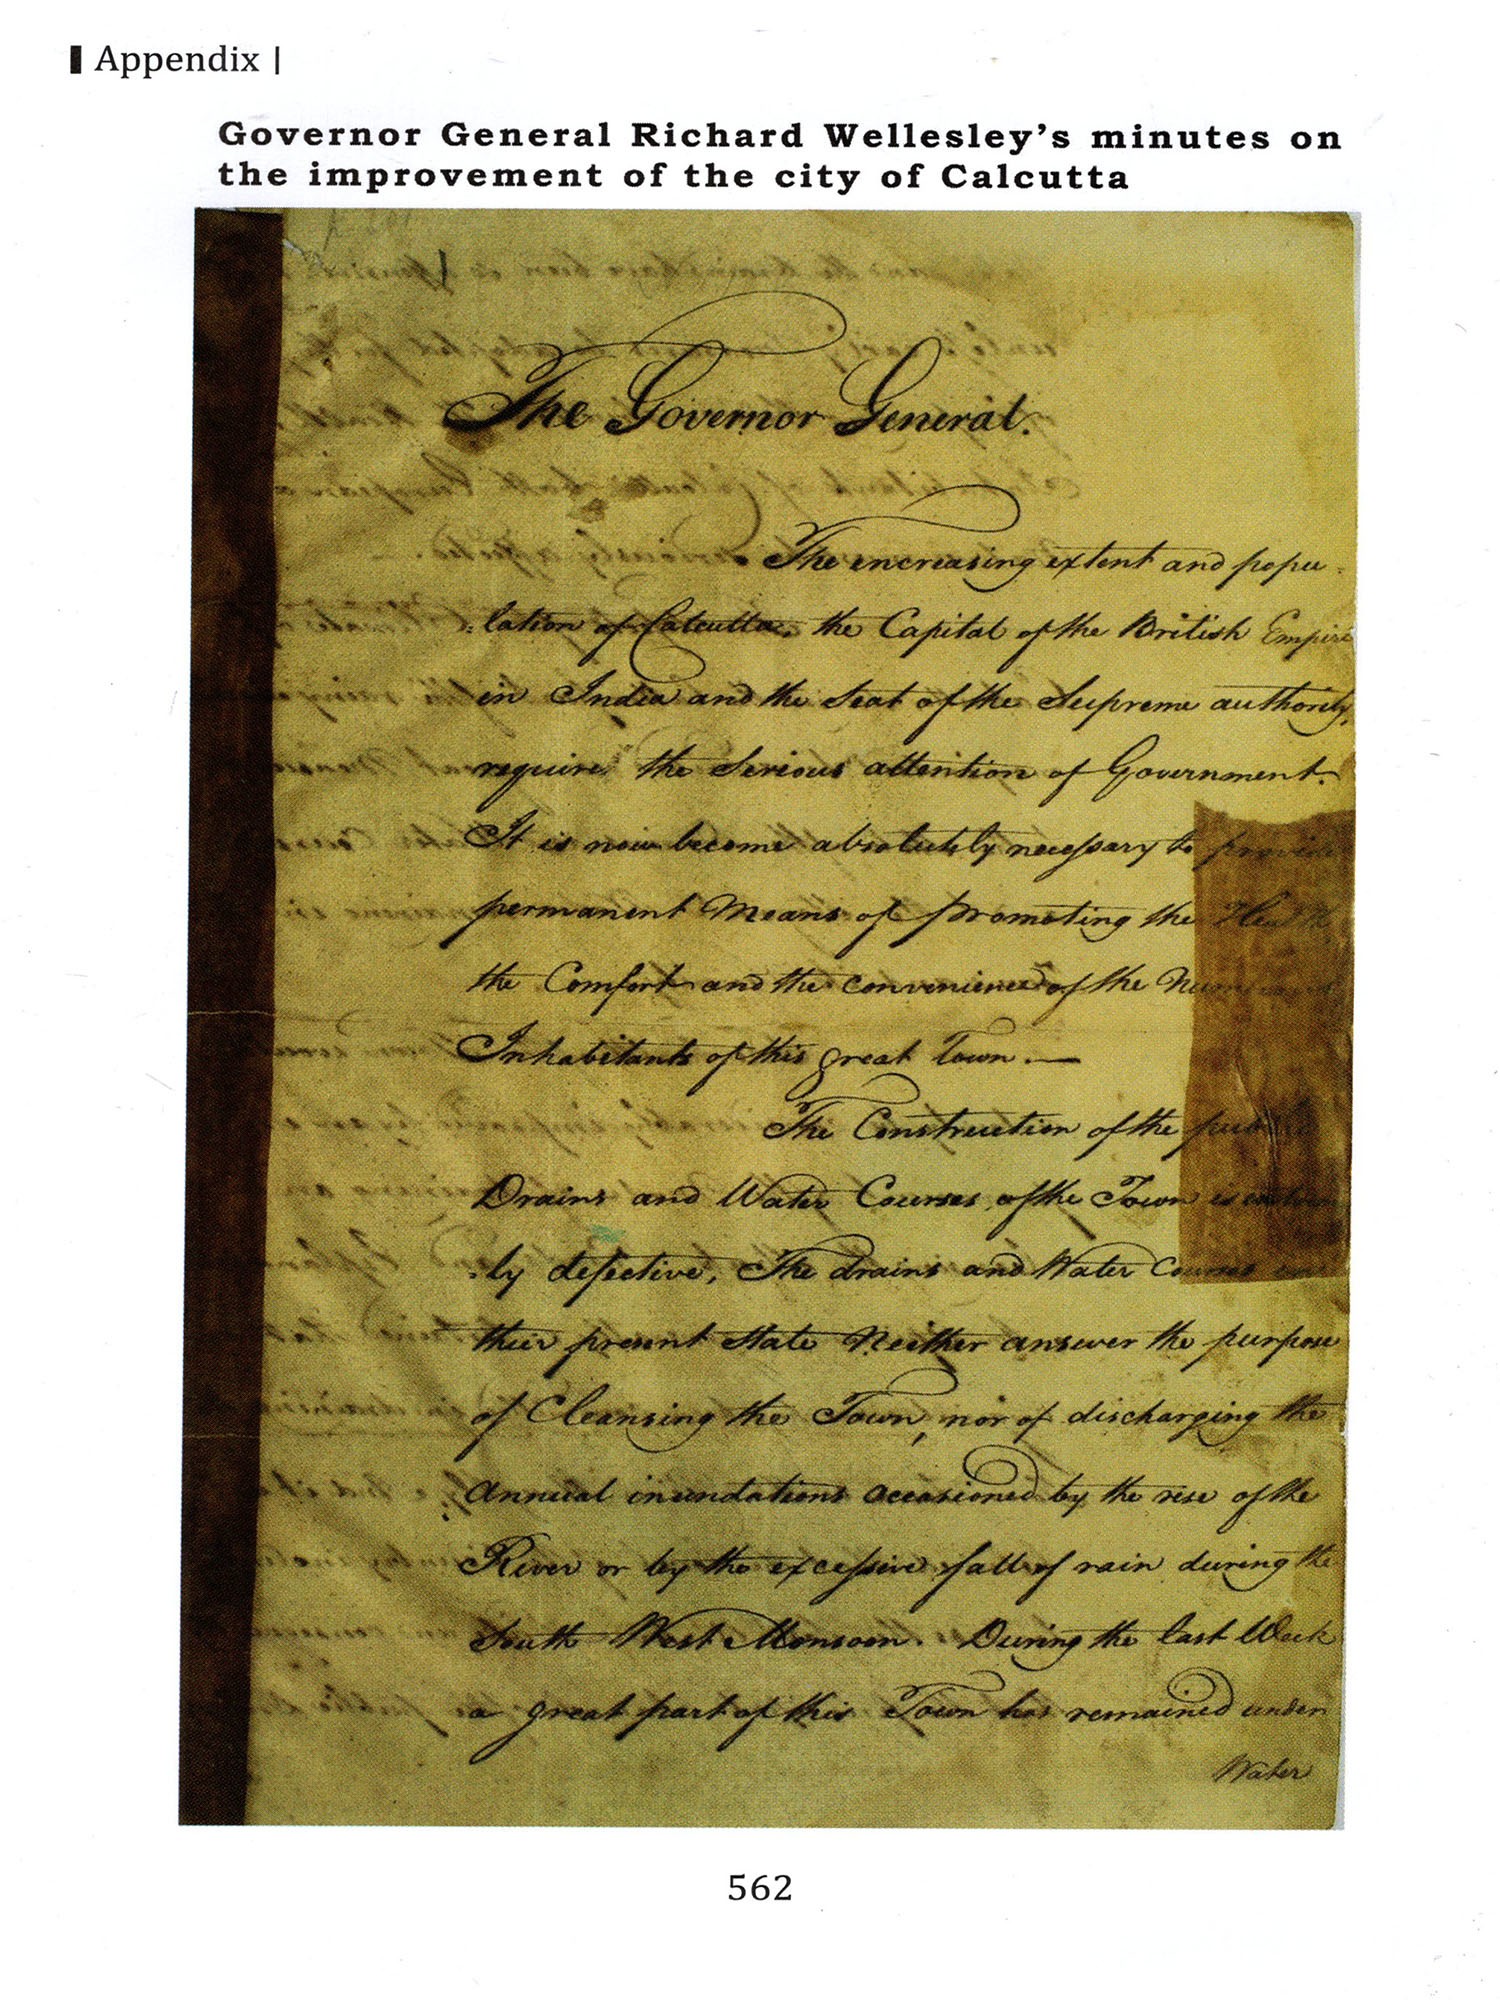 Appendix |
Governor General Richard Wellesley's minutes on
the improvement of the city of Calcutta
The Governor General.
The encreasing extent and popu
:lation of Calcutta, the Capital of the British Empire
in India and the Seat of the Supreme authority,
require the Serious attention of Government.
It is now become absolutely necessary to provide
permanent Means of promoting the Health,
the Comfort and the convenience of the Numerous
Inhabitants of this great Town.—
The Construction of the public
Drains and Water Courses of the Town is
:ly defective, The drains and Water Courses in
their present State Neither answer the purpose
of Cleansing the Town, nor of discharging the
Annual inundations occasioned by the rise of the
River or by the excessive fall of rain during the
South West Monsoon. During the last Week
a great part of this Town has remained under
Water
562